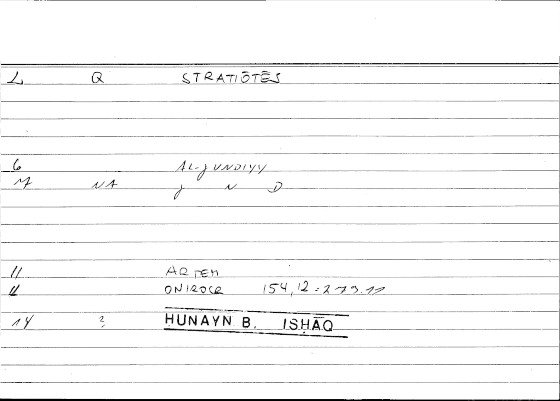 L Q STRATIŌTĒS
6 AL-JUNDIYY
M NA J N D
11 ARTEM
11 ONIROCR 154,12 = 273.11
14 ? HUNAYN B. ISḤĀQ